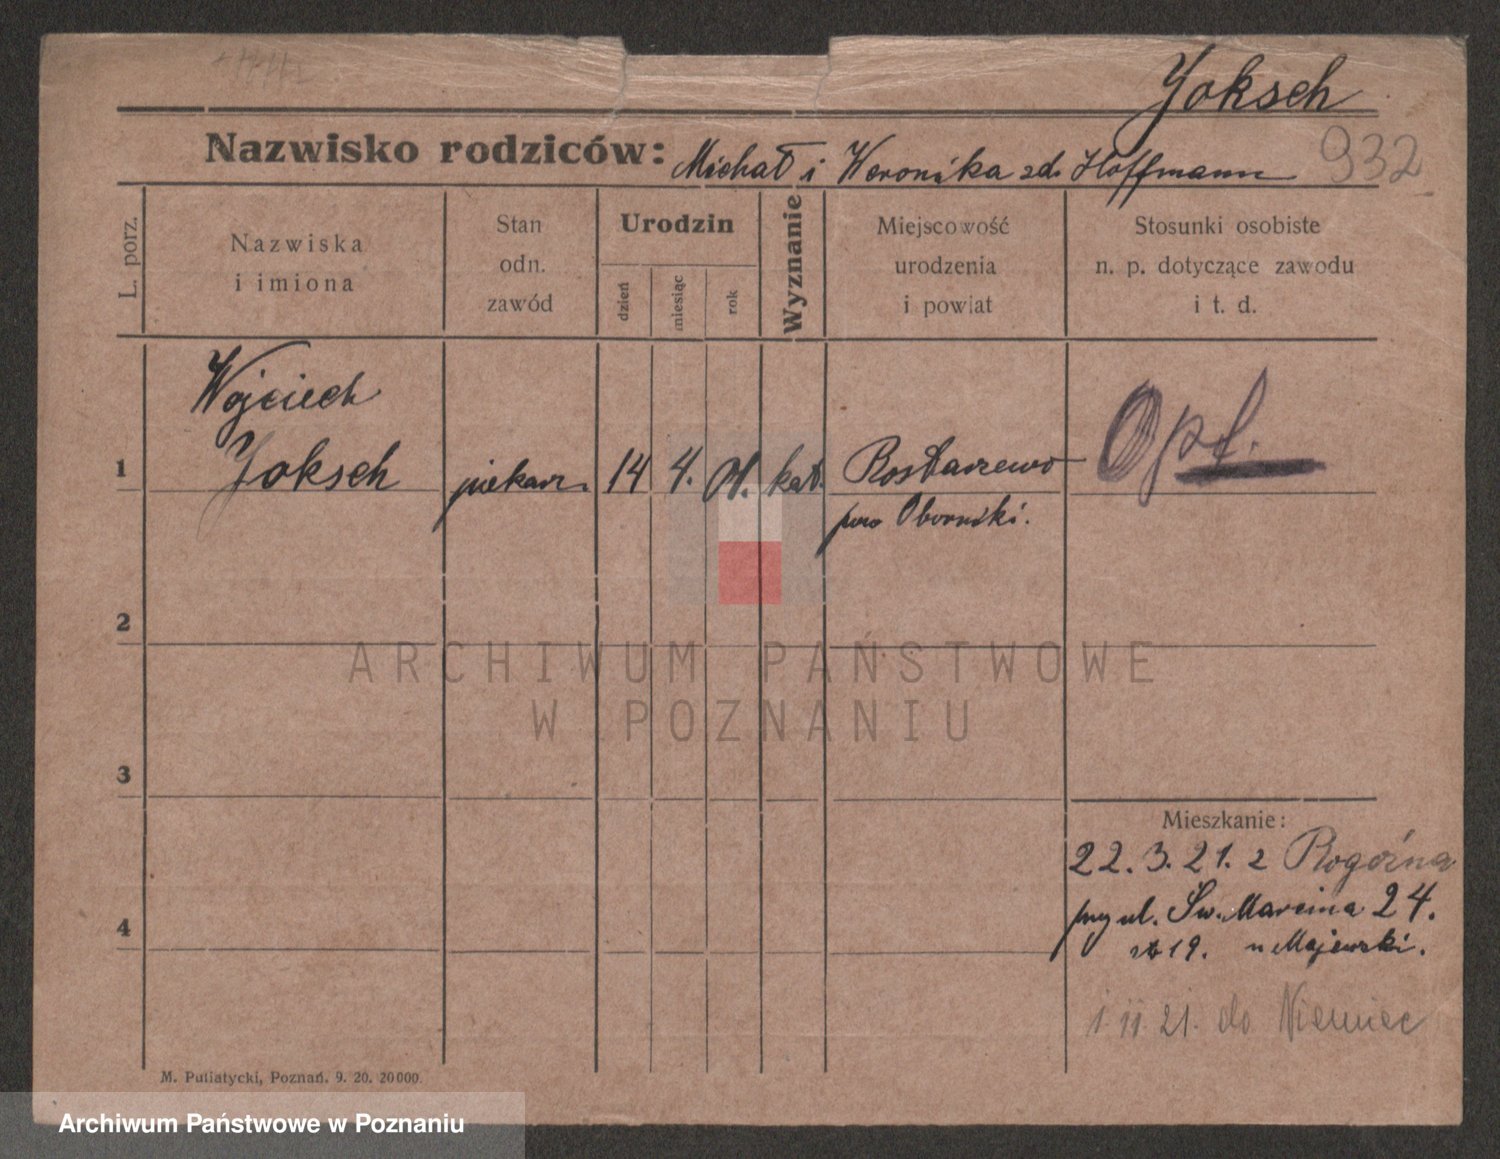 Joksch
932
Nazwisko rodziców: Michał i Weronika zd. Hoffmann
L. porz.
Nazwiska
i imiona
Stan
odn.
zawód
Urodzin
dzień
miesiąc
rok
Wyznanie
Miejscowość
urodzenia
i powiat
Stosunki osobiste
n. p. dotyczące zawodu
i t. d.
Wojciech
1 Joksch piekarz. 14 4. 01. kat. Rostarzewo Opt.
pow Obornicki.
2
3
4
Mieszkanie:
22.3.21. z Rogoźna
przy ul. Św. Marcina 24.
19. u Majewski.
1.11.21. do Niemiec
M. Putiatycki, Poznań. 9. 20. 20000.
ARCHIWUM PAŃSTWOWE
W POZNANIU
Archiwum Państwowe w Poznaniu